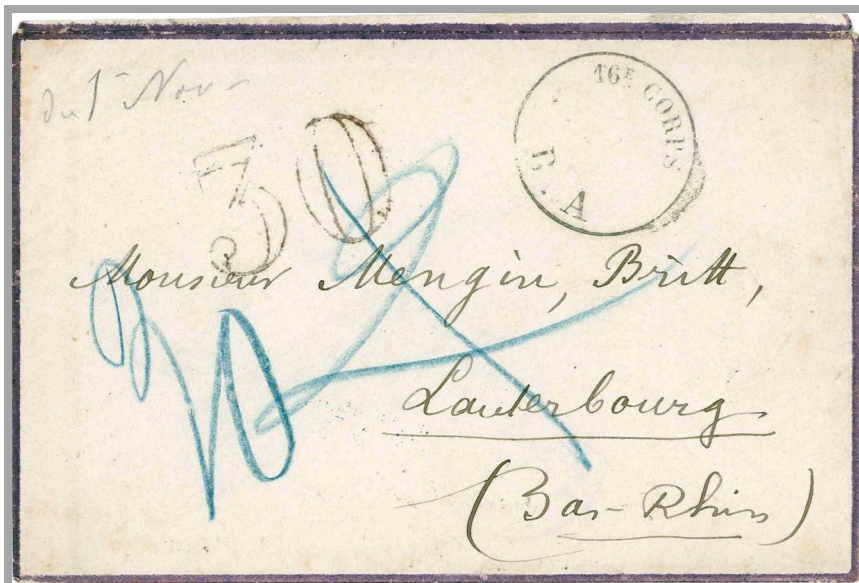 du 1er Nov
16E CORPS
B. A
30
Monsieur Mengin, Britt,
Lauterbourg
(Bas-Rhin)